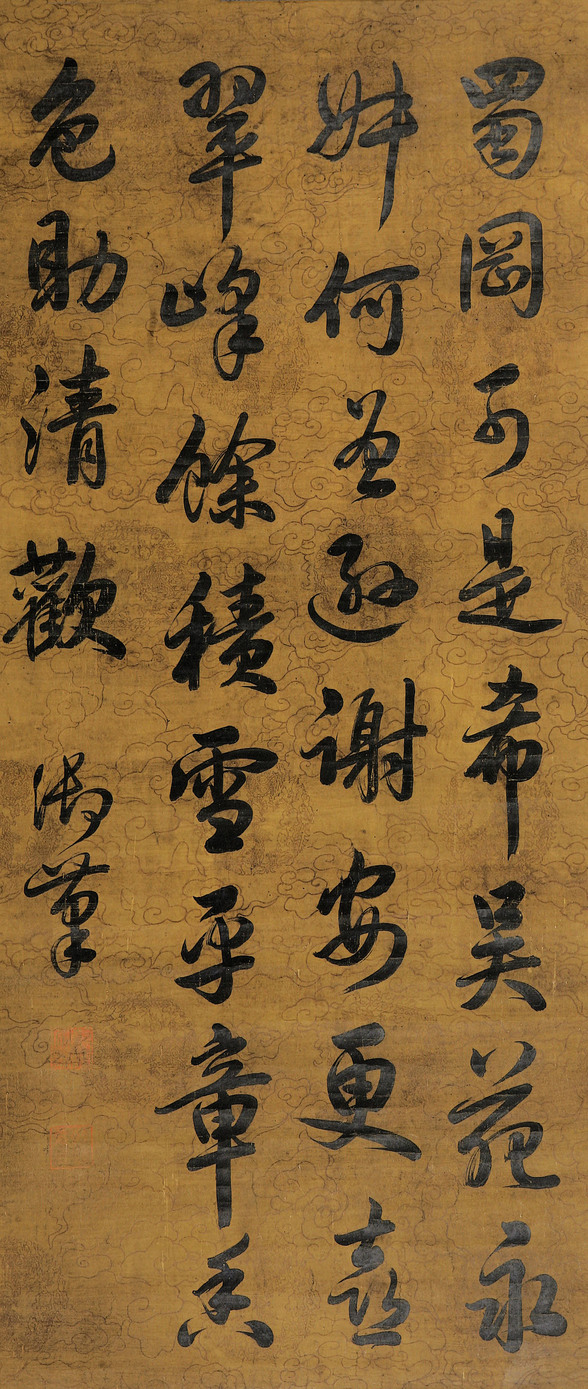 蜀岡可是希吳苑永
叔何曾遜謝安更喜
翠峰餘積雪平章香
色助清歡 御筆